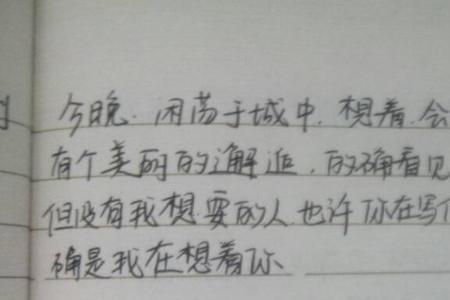 今晚.闲荡于城中.想着.会
有个美丽的邂逅.的确看见
但没有我想要的人也许你在写
确是我在想着你